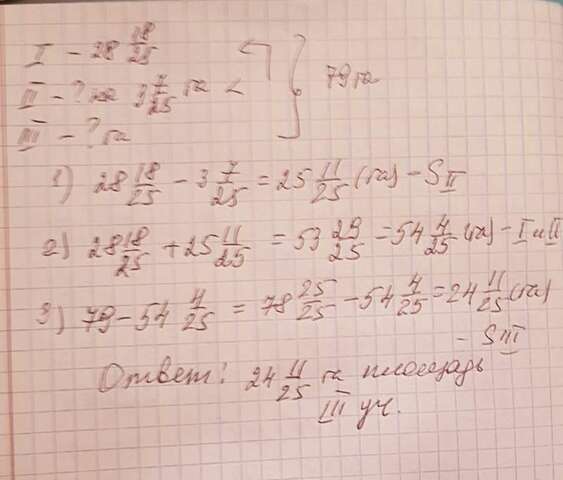 I - 28 18/25
II - ? на 3 7/25 га <
79 га
III - ? га
1) 28 18/25 - 3 7/25 = 25 11/25 (га) - S II
2) 28 18/25 + 25 11/25 = 53 29/25 = 54 4/25 (га) - I и II
3) 79 - 54 4/25 = 78 25/25 - 54 4/25 = 24 11/25 (га)
- S III
Ответ: 24 11/25 га площадь
III уч.